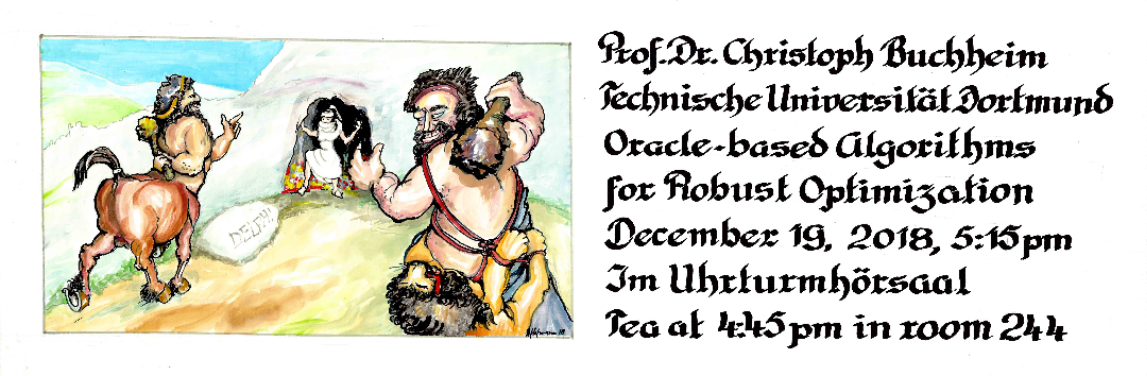 DELPHI
Prof. Dr. Christoph Buchheim
Technische Universität Dortmund
Oracle-based Algorithms
for Robust Optimization
December 19, 2018, 5:15 pm
Im Uhrturmhörsaal
Tea at 4:45 pm in room 244